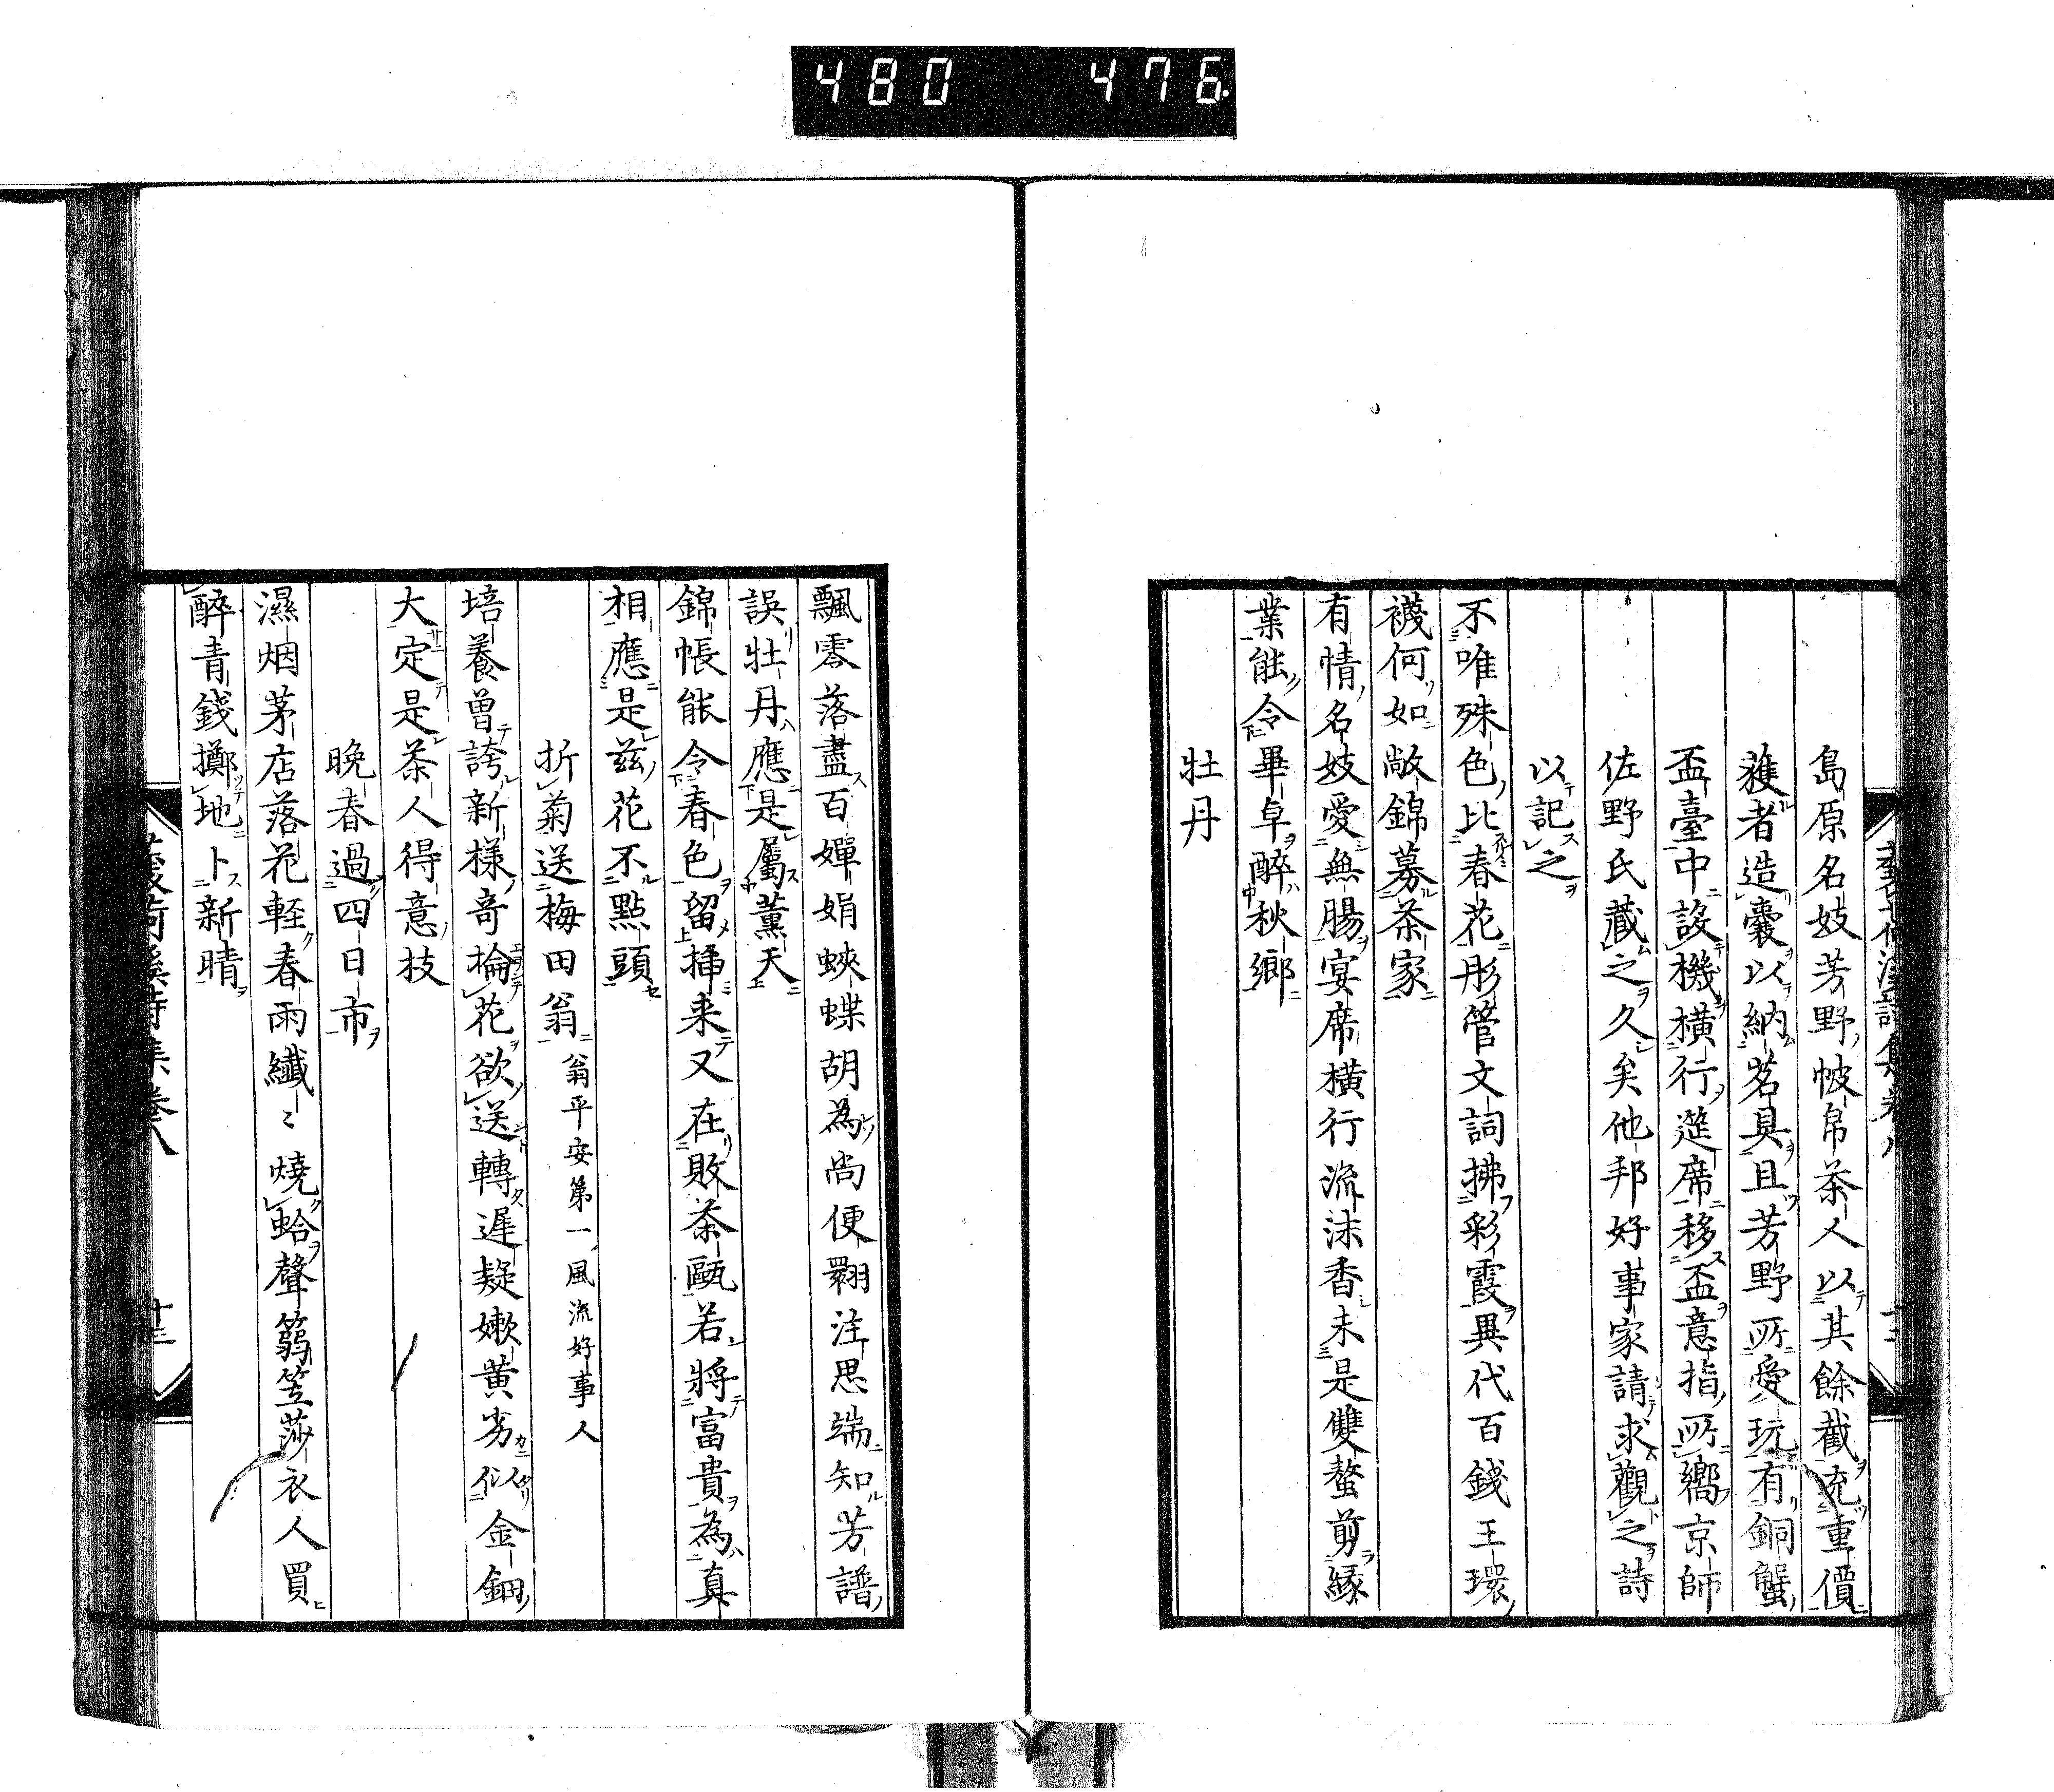 480 476
島原名妓芳野帔帛茶人以其餘截充重價
獲者造嚢以納茗具且芳野所愛玩有銅蟹
盃臺中設機橫行筵席移盃意指所嚮京師
佐野氏藏之久矣他邦好事家請求觀之詩
以記之
不唯殊色比春花彤管文詞拂彩霞異代百錢王環
襪何如敝錦募茶家
有情名妓愛無腸宴席橫行流沫香未是雙螯剪緣
業能令畢卓醉秋鄉
牡丹
飄零落盡百嬋娟蛺蝶胡為尚便翾注思端知芳譜
誤牡丹應是屬薰天
錦帳能令春色留挿来又在敗茶甌若將富貴為真
相應是茲花不點頭
折菊送梅田翁翁平安第一風流好事人
培養曾誇新樣奇掄花欲送轉遲疑嫩黄劣似金鈿
大定是茶人得意枝
晚春過四日市
濕烟茅店落花軽春雨纖〻燒蛤聲篛笠莎衣人買
醉青錢擲地卜新晴